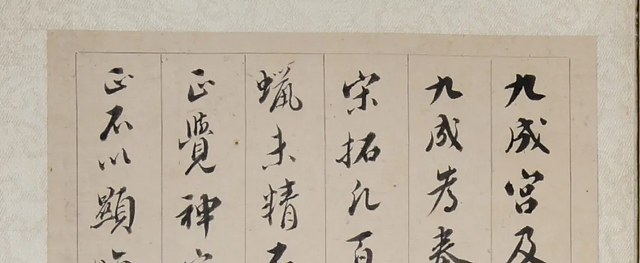 九成宮及
九成為奉
宋拓凡百
蠟未精
正覺神
正不以顯